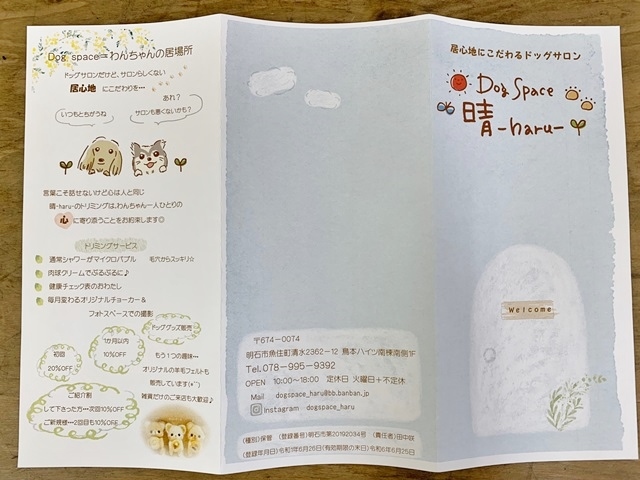 Dog space＝わんちゃんの居場所
ドッグサロンだけど、サロンらしくない
居心地 にこだわりを…
あれ？
いつもとちがうね
サロンも悪くないかも？
言葉こそ話せないけど心は人と同じ
晴-haru-のトリミングは、わんちゃん一人ひとりの
心 に寄り添うことをお約束します◎
トリミングサービス
通常シャワーがマイクロバブル 毛穴からスッキリ☆
肉球クリームでぷるぷるに♪
健康チェック表のおわたし
毎月変わるオリジナルチョーカー＆
フォトスペースでの撮影
ドッググッズ販売
初回
20%OFF
1か月以内
10%OFF
もう1つの趣味…
オリジナルの羊毛フェルトも
販売しています(**)
雑貨だけのご来店も大歓迎♪
ご紹介割
して下さった方…次回10%OFF
ご新規様…2回目も10%OFF
〒674-0074
明石市魚住町清水2362-12 鳥本ハイツ南棟南側1F
Tel.078-995-9392
OPEN 10:00～18:00 定休日 火曜日＋不定休
Mail dogspace_haru@bb.banban.jp
Instagram dogspace_haru
(種別)保管 (登録番号)明石市第20192034号 (責任者)田中咲
(登録年月日)令和1年6月26日(有効期限の末日)令和6年6月25日
居心地にこだわるドッグサロン
Dog Space
晴-haru-
Welcome